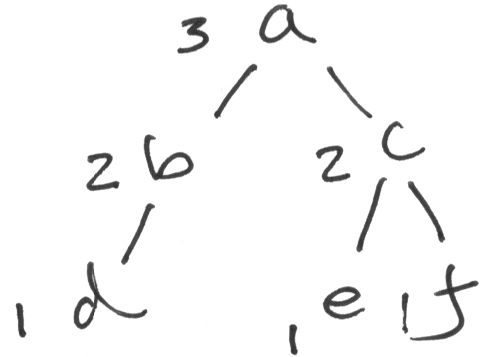 3 a
2 b 2 c
1 d 1 e 1 f